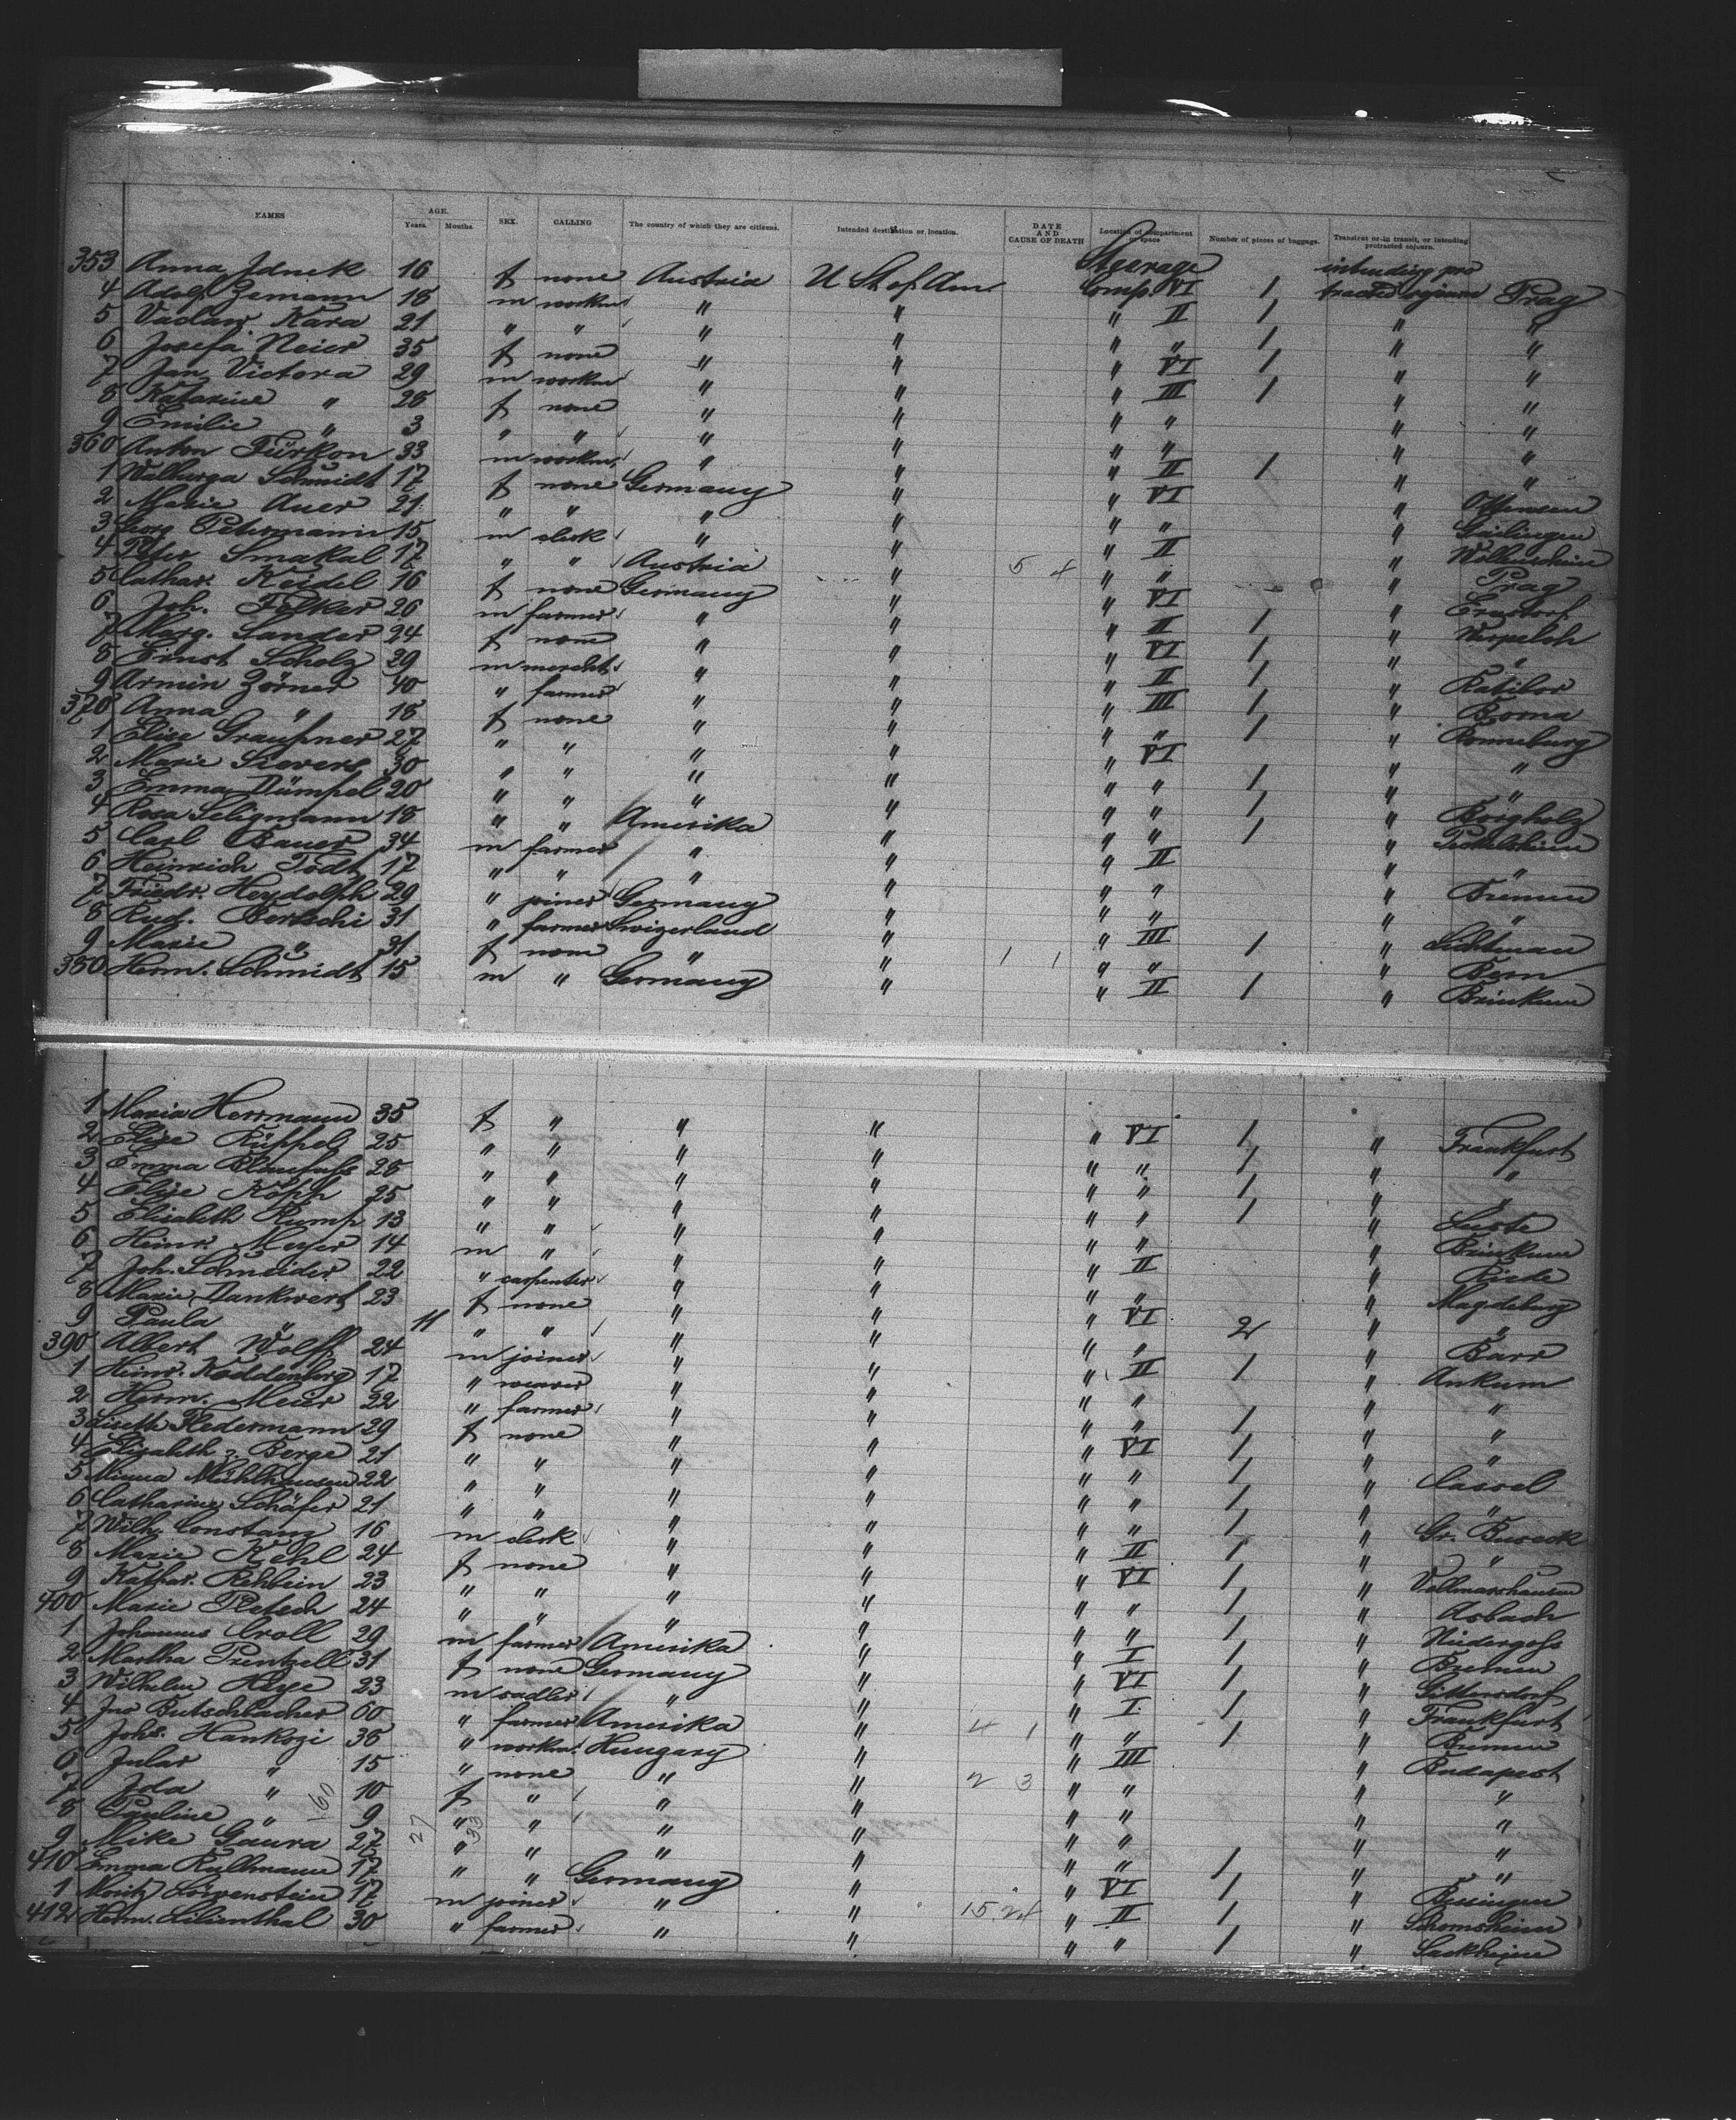 NAMES AGE. Years. Months. SEX. CALLING The country of which they are citizens. Intended destination or location. DATE AND CAUSE OF DEATH Location of compartment or space Number of pieces of baggage. Transient or in transit, or intending protracted sojourn.
Steerage intending pro
353 Anna Jdnek 16 f none Austria U St of Am. Comp. VI 1 tracted sojourn Prag
4 Adolf Zemann 18 m workm " " " II 1 " "
5 Vaclav Kara 21 " " " " " " 1 " "
6 Josefa Neier 35 f none " " " VI 1 " "
7 Jan Victora 29 m workm " " " III 1 " "
8 Katarine " 28 f none " " " " " "
9 Emilie " 3 " " " " " " " "
360 Anton Fürkon 33 m workm " " " II 1 " "
1 Walburga Schmidt 17 f none Germany " " VI " Ottensen
2 Marie Auer 21 " " " " " " " Gailingen
3 Georg Petermann 15 m clerk " " " II "
4 Peter Smakal 17 " " Austria " 5 4 " " " Prag
5 Cathar. Keidel 16 f none Germany " " VI "
6 Joh. Folker 26 m farmer " " " II 1 "
7 Marg. Sander 24 f none " " " VI 1 " "
8 Ernst Scholz 29 m mercht. " " " II 1 " Ratibor
9 Armin Zörner 40 " farmer " " " III 1 " Borna
370 Anna " 18 f none " " " " 1 " Ronneburg
1 Elise Graupner 27 " " " " " VI " "
2 Marie Sievers 30 " " " " " " 1 " "
3 Emma Dümpel 20 " " " " " " 1 " Borgholz
4 Rosa Seligmann 18 " " Amerika " " " 1 " Peckelsheim
5 Carl Bauer 34 m farmer " " " II " "
6 Heinrich Todt 17 " " " " " " " Bremen
7 Friedr. Heydolph 29 " joiner Germany " " " " "
8 Rud. Bertschi 31 " farmer Swizerland " " III 1 " Lichtenau
9 Marie " 31 f none " " 1 1 " " " Bern
380 Herm. Schmidt 15 m " Germany " " II 1 " Brinkum
1 Maria Herrmann 35 f " " " " VI 1 " Frankfurt
2 Elise Rüppel 25 " " " " " " 1 " "
3 Emma Blaufuss 28 " " " " " " 1 " "
4 Elise Köpp 25 " " " " " " 1 " Leeste
5 Elisabeth Rump 13 " " " " " " " Brinkum
6 Heinr. Meyer 14 m " " " " II " Riede
7 Joh. Schneider 22 " carpenter " " " " " Magdeburg
8 Marie Dankwert 23 f none " " " VI 2 " "
9 Paula " 11 " " " " " " " Barr
390 Albert Wolff 24 m joiner " " " II 1 " Ankum
1 Heinr. Koddenberg 17 " weaver " " " " " "
2 Herm. Meier 22 " farmer " " " " 1 " "
3 Liseth Fledermann 29 f none " " " VI 1 " "
4 Elisabeth z. Berge 21 " " " " " " 1 " Cassel
5 Minna Mühlhausen 22 " " " " " " 1 " "
6 Catharine Schäfer 21 " " " " " " 1 " Gr. Buseck
7 Wilh. Constanz 16 m clerk " " " II 1 " "
8 Marie Kehl 24 f none " " " VI 1 " Vollmarshausen
9 Kathar. Rehbein 23 " " " " " " 1 " Asbach
400 Marie Pletsch 24 " " " " " " 1 " Niedergoss
1 Johannes Croll 29 m farmer Amerika " " I 1 " Bremen
2 Martha Prentzell 31 f none Germany " " VI 1 " Gittersdorf
3 Wilhelm Heye 23 m sadler " " " I 1 " Frankfurt
4 Jno Butschbacher 60 " farmer Amerika " 4 1 " " 1 " Bremen
5 Johs. Hankozi 36 " workm. Hungary " " III " Budapest
6 Jular " 15 " none " " 2 3 " " " "
7 Ida " 10 f " " " " " " "
8 Pauline " 9 " " " " " " " "
9 Mike Gaura 27 " " " " " " 1 " "
410 Emma Kullmann 17 " " Germany " " VI 1 " Bissingen
1 Moritz Löwenstein 17 m joiner " " 15 24 " II 1 "
412 Herm. Lilienthal 30 " farmer " " " " 1 "